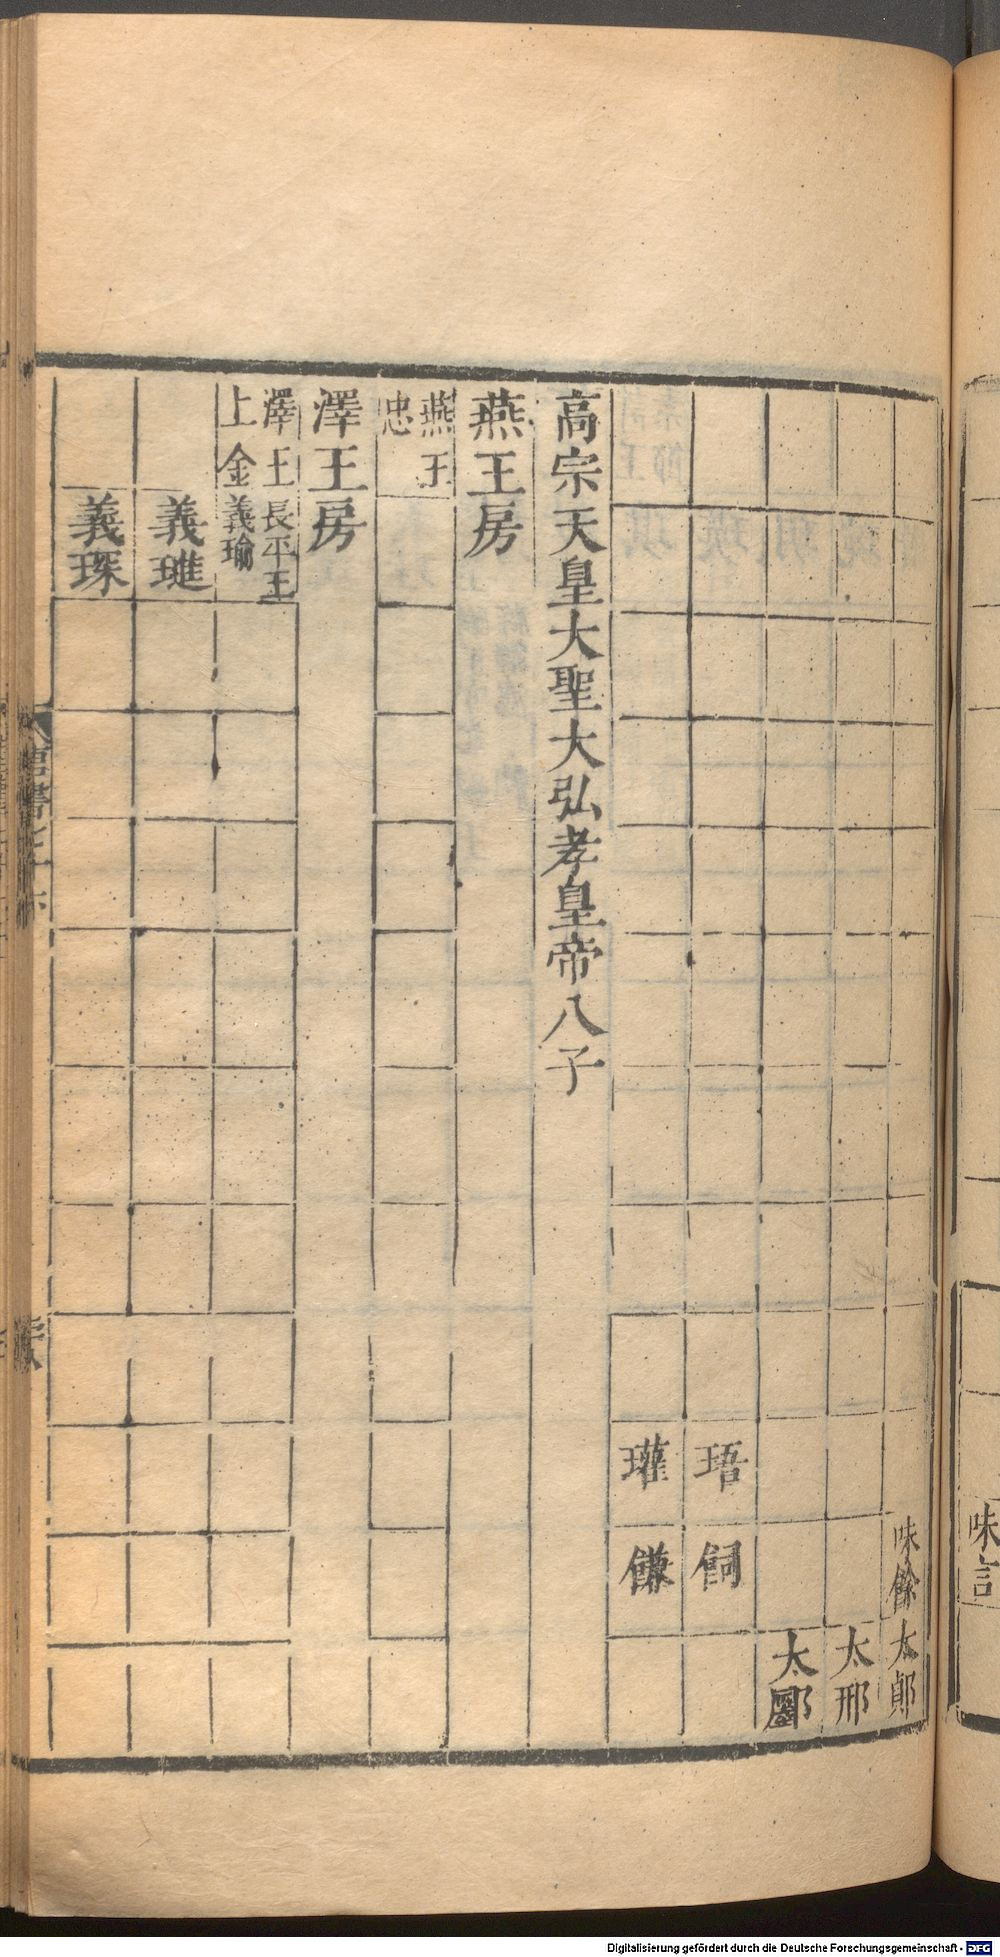 味言
味餘
太鄖
太邢
太酆
珸
餇
瓘
𩜮
高宗天皇大聖大弘孝皇帝八子
燕王房
燕王
忠
澤王房
澤王
上金
長平王
義瑜
義璡
義琛
Digitalisierung gefördert durch die Deutsche Forschungsgemeinschaft - DFG